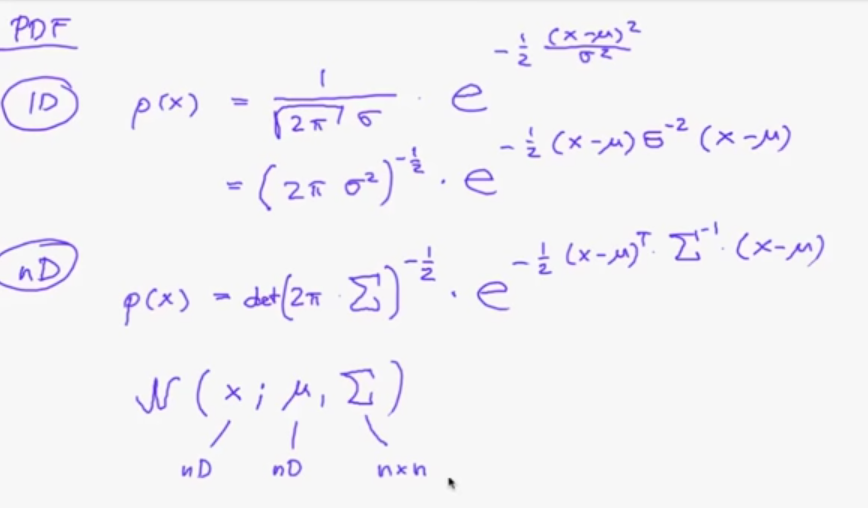 PDF
1D p(x) = 1/(√(2π) σ) · e^(-1/2 (x-μ)²/σ²)
= (2π σ²)^(-1/2) · e^(-1/2 (x-μ) σ^(-2) (x-μ))
nD p(x) = det(2π · Σ)^(-1/2) · e^(-1/2 (x-μ)^T · Σ^(-1) · (x-μ))
N(x; μ, Σ)
nD nD n×n